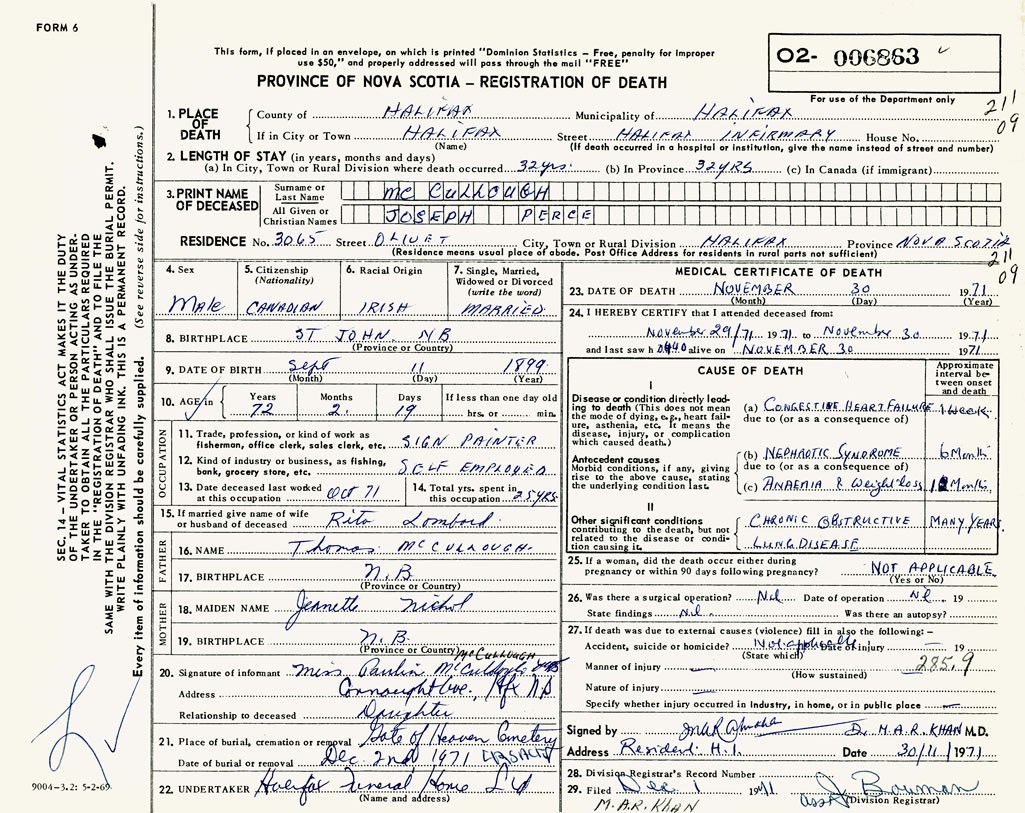 FORM 6
This form, if placed in an envelope, on which is printed "Dominion Statistics – Free, penalty for improper
use $50," and properly addressed will pass through the mail "FREE"
PROVINCE OF NOVA SCOTIA – REGISTRATION OF DEATH
O2- 006863
For use of the Department only
211
09
1. PLACE OF DEATH
County of HALIFAX Municipality of HALIFAX
If in City or Town HALIFAX Street HALIFAX INFIRMARY House No.
(Name) (If death occurred in a hospital or institution, give the name instead of street and number)
2. LENGTH OF STAY (in years, months and days)
(a) In City, Town or Rural Division where death occurred 32yrs. (b) In Province 32YRS (c) In Canada (if immigrant)
3. PRINT NAME OF DECEASED
Surname or Last Name Mc CULLOUGH
All Given or Christian Names JOSEPH PERCE
RESIDENCE No. 3065 Street OLIVET City, Town or Rural Division HALIFAX Province NOVA SCOTIA
(Residence means usual place of abode. Post Office Address for residents in rural parts not sufficient)
211
09
4. Sex
Male
5. Citizenship (Nationality)
CANADIAN
6. Racial Origin
IRISH
7. Single, Married, Widowed or Divorced (write the word)
MARRIED
8. BIRTHPLACE ST JOHN N B
(Province or Country)
9. DATE OF BIRTH Sept 11 1899
(Month) (Day) (Year)
10. AGE in Years Months Days If less than one day old
72 2 19 hrs. or min.
OCCUPATION
11. Trade, profession, or kind of work as
fisherman, office clerk, sales clerk, etc. SIGN PAINTER
12. Kind of industry or business, as fishing,
bank, grocery store, etc. SELF EMPLOYED
13. Date deceased last worked
at this occupation Oct 71
14. Total yrs. spent in
this occupation 25 YRS
15. If married give name of wife
or husband of deceased Rita Lombard
FATHER
16. NAME Thomas McCULLOUGH
17. BIRTHPLACE N.B.
(Province or Country)
MOTHER
18. MAIDEN NAME Jeanette Nichol
19. BIRTHPLACE N.B.
(Province or Country)
McCULLOUGH
20. Signature of informant Miss Paulin McCullough
Address Connaught Ave. Hfx NS
Relationship to deceased Daughter
21. Place of burial, cremation or removal Gate of Heaven Cemetery
Date of burial or removal Dec 2nd 1971
22. UNDERTAKER Halifax Funeral Home Ltd
(Name and address)
MEDICAL CERTIFICATE OF DEATH
23. DATE OF DEATH NOVEMBER 30 1971
(Month) (Day) (Year)
24. I HEREBY CERTIFY that I attended deceased from:
November 29/71 1971 to November 30 1971
and last saw h 0440 alive on NOVEMBER 30 1971
CAUSE OF DEATH
Approximate interval between onset and death
I
Disease or condition directly leading
to death (This does not mean
the mode of dying, e.g., heart failure,
asthenia, etc. It means the
disease, injury, or complication
which caused death.)
(a) CONGESTIVE HEART FAILURE 1 week
due to (or as a consequence of)
Antecedent causes
Morbid conditions, if any, giving
rise to the above cause, stating
the underlying condition last.
(b) NEPHROTIC SYNDROME 6 Months
due to (or as a consequence of)
(c) ANAEMIA & Weight loss Months
II
Other significant conditions
contributing to the death, but not
related to the disease or condition
causing it.
CHRONIC OBSTRUCTIVE MANY YEARS
LUNG DISEASE
25. If a woman, did the death occur either during
pregnancy or within 90 days following pregnancy? NOT APPLICABLE
(Yes or No)
26. Was there a surgical operation? Nil Date of operation Nil 19
State findings Nil Was there an autopsy?
27. If death was due to external causes (violence) fill in also the following:–
Accident, suicide or homicide? Not applicable Date of injury 19
(State which)
285.9
Manner of injury
(How sustained)
Nature of injury
Specify whether injury occurred in industry, in home, or in public place
Signed by Dr. M.A.R. KHAN M.D.
Address Resident H.I. Date 30/11/1971
28. Division Registrar's Record Number
29. Filed Dec 1 1971 J. Bowman
asst (Division Registrar)
M.A.R. KHAN
SEC. 14 – VITAL STATISTICS ACT MAKES IT THE DUTY
OF THE UNDERTAKER OR PERSON ACTING AS UNDER-
TAKER TO OBTAIN ALL THE PARTICULARS REQUIRED
IN THE "REGISTRATION OF DEATH" AND TO FILE THE
SAME WITH THE DIVISION REGISTRAR WHO SHALL ISSUE THE BURIAL PERMIT.
WRITE PLAINLY WITH UNFADING INK. THIS IS A PERMANENT RECORD.
Every item of information should be carefully supplied. (See reverse side for instructions.)
9004-3.2: 5-2-69